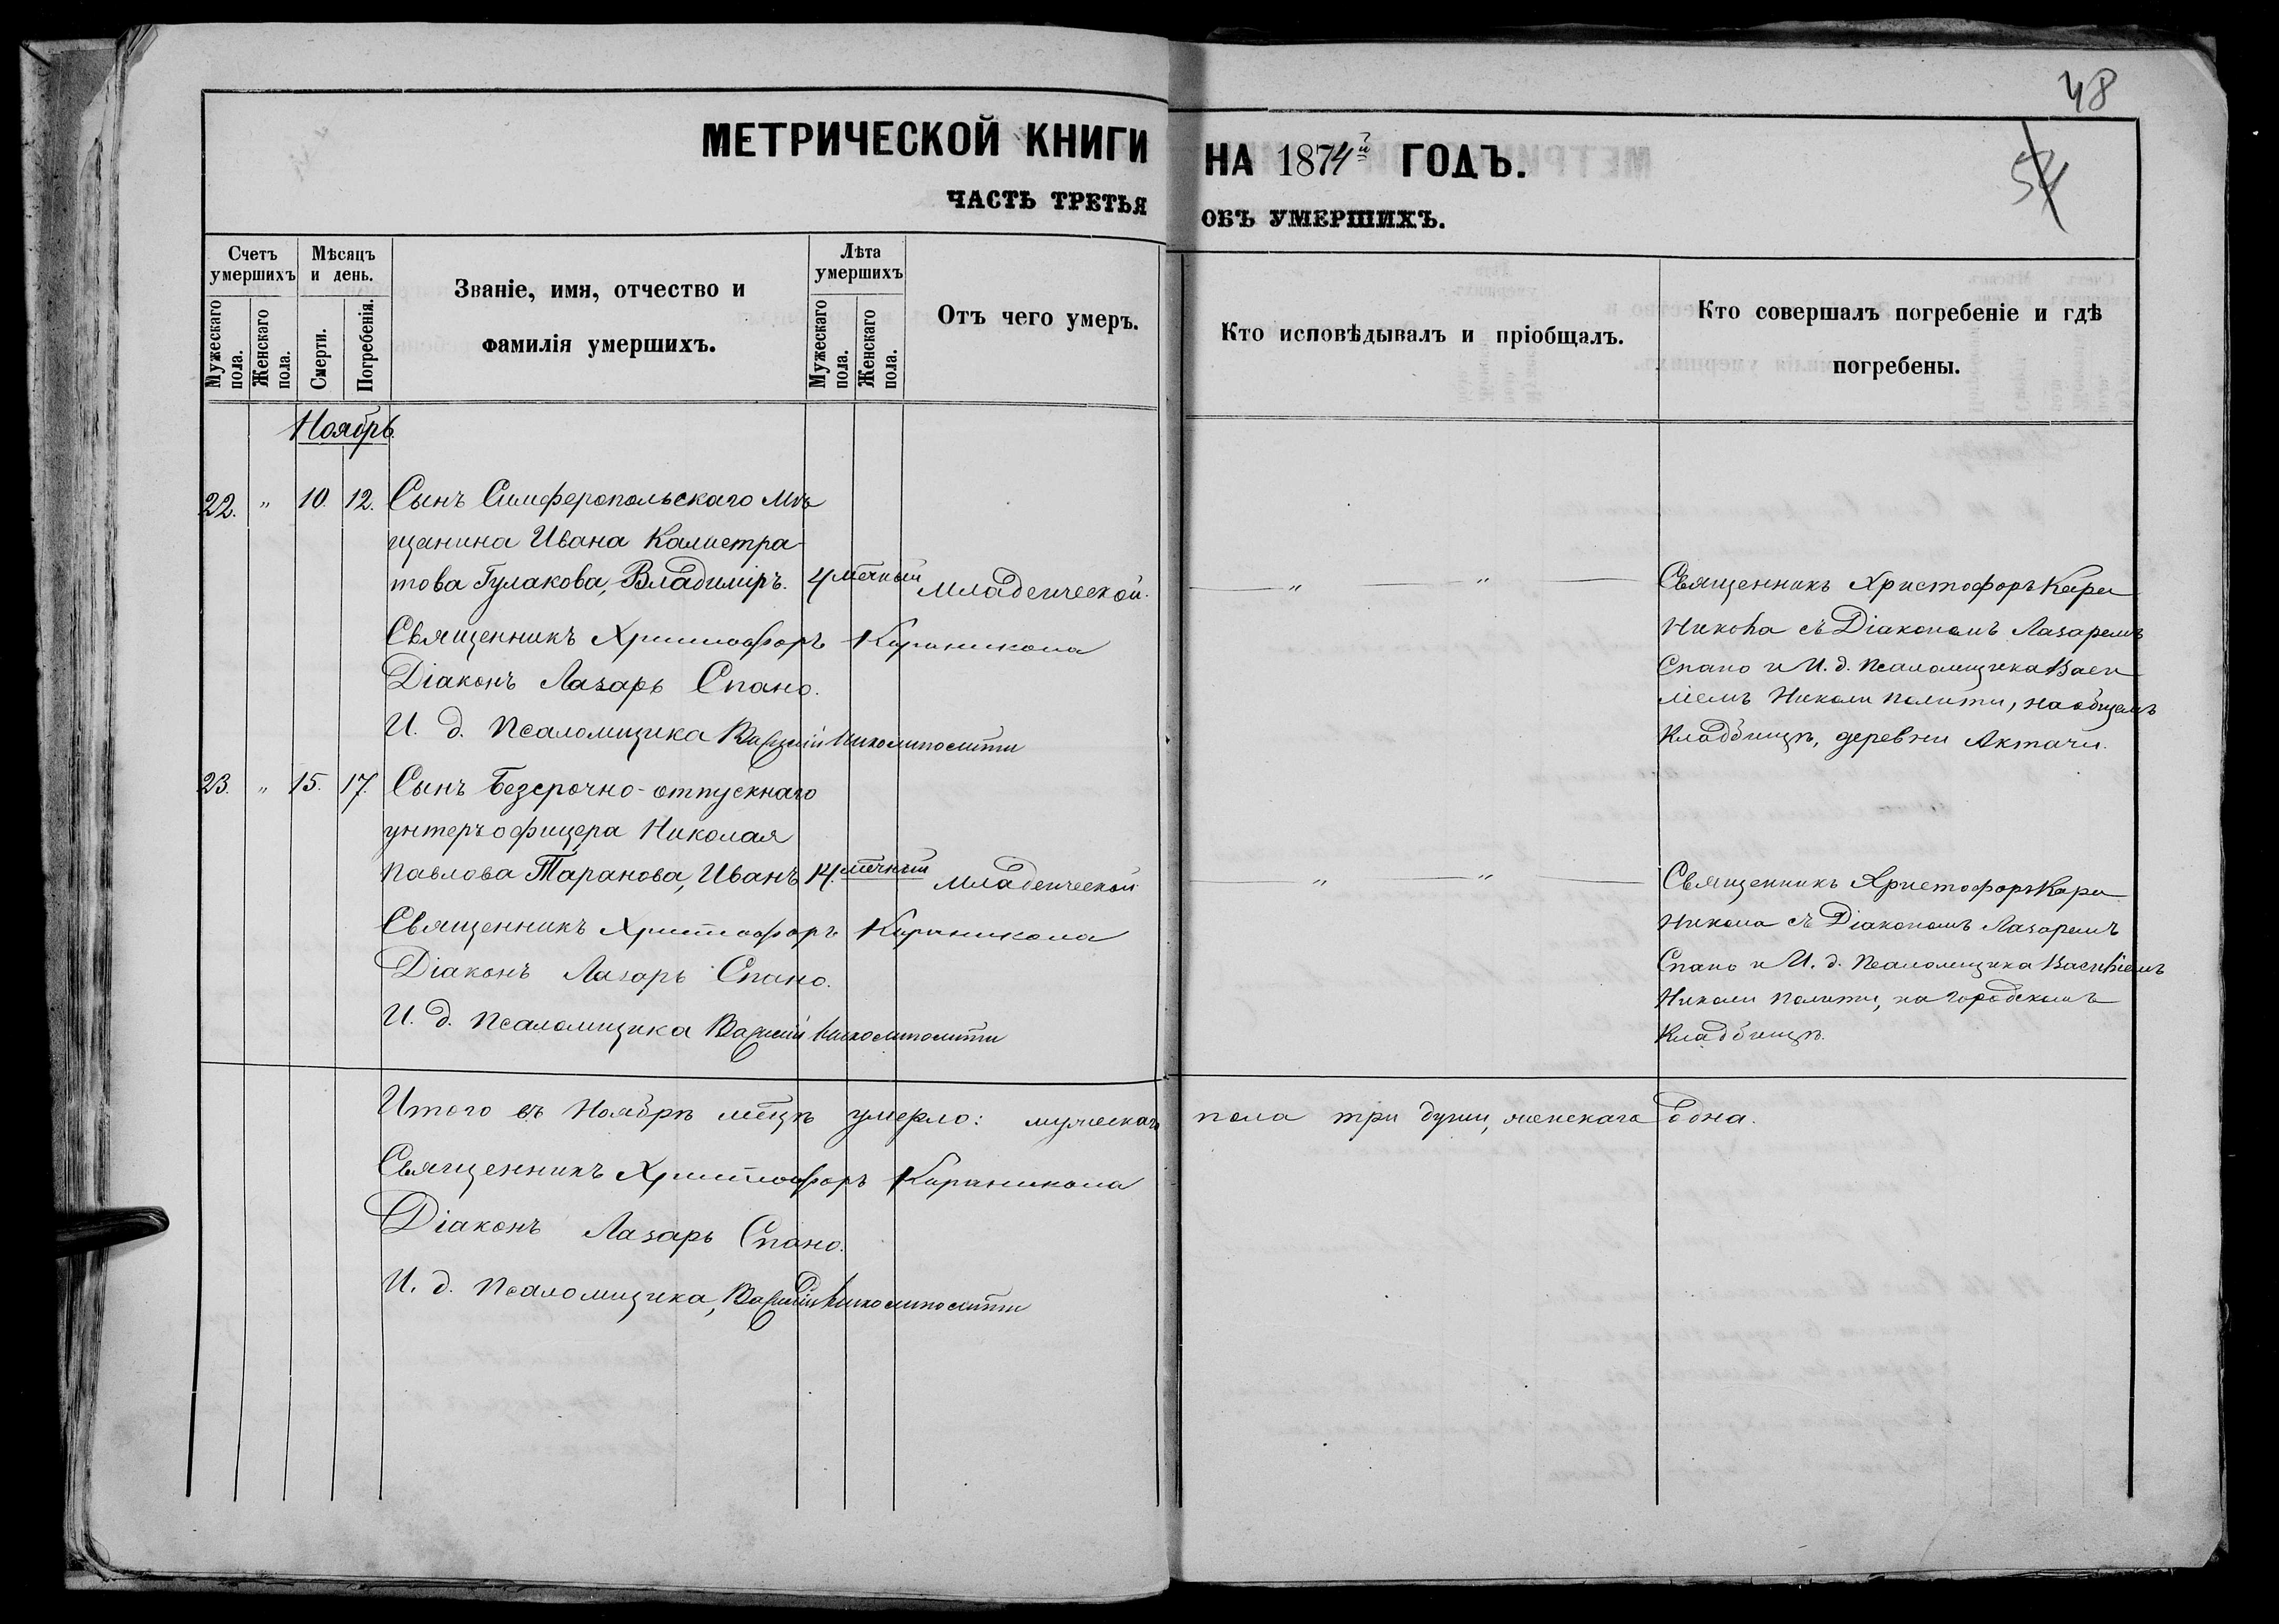 48
54
МЕТРИЧЕСКОЙ КНИГИ НА 1874й ГОДЪ.
ЧАСТЬ ТРЕТЬЯ ОБЪ УМЕРШИХЪ.
Счетъ умершихъ
Мужескаго пола.
Женскаго пола.
Мѣсяцъ и день.
Смерти.
Погребенія.
Званіе, имя, отчество и
фамилія умершихъ.
Лѣта умершихъ
Мужескаго пола.
Женскаго пола.
Отъ чего умеръ.
Кто исповѣдывалъ и пріобщалъ.
Кто совершалъ погребеніе и гдѣ
погребены.
Ноябрь.
22. " 10. 12. Сынъ Симферопольскаго Мѣ
щанина Ивана Калистра-
това Гулакова, Владиміръ. 4 мѣчный Младенческой. " "
Священникъ Христофоръ Кара
Никола съ Діакономъ Лазаремъ
Спано и И. д. Псаломщика Васи
ліемъ Николи Полити, на общемъ
Кладбищѣ, деревни Актачи.
Священникъ Христофоръ Караникола
Діаконъ Лазарь Спано.
И. д. Псаломщика Василій Николиполити
23. " 15. 17. Сынъ безсрочно-отпускнаго
унтеръ офицера Николая
Павлова Таранова, Иванъ 14. мѣчный Младенческой " "
Священникъ Христофоръ Кара
Никола съ Діакономъ Лазаремъ
Спано и И. д. Псаломщика Василіемъ
Николи Полити, на городскомъ
Кладбищѣ.
Священникъ Христофоръ Караникола
Діаконъ Лазарь Спано.
И. д. Псаломщика Василій Николиполити
Итого въ Ноябрѣ мѣцѣ умерло: мужескаго пола три души, женскаго одна.
Священникъ Христофоръ Караникола
Діаконъ Лазарь Спано.
И. д. Псаломщика, Василій Николиполити